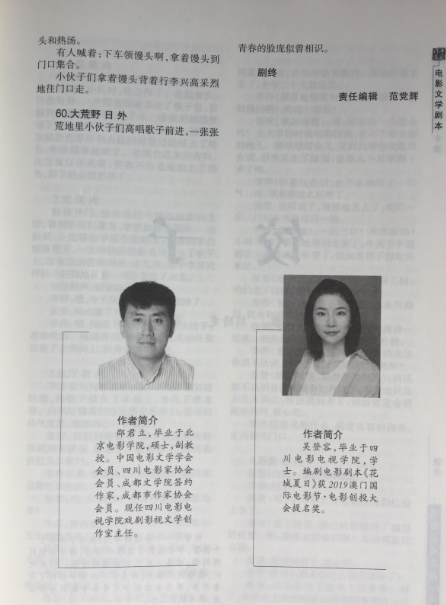 头和热汤。
有人喊着:下车领馒头啊,拿着馒头到
门口集合。
小伙子们拿着馒头背着行李兴高采烈
地往门口走。
60.大荒野 日 外
荒地里小伙子们高唱歌子前进,一张张
青春的脸庞似曾相识。
剧终
责任编辑 范党辉
电影文学剧本
作者简介
邵君立,毕业于北
京电影学院,硕士,副教
授。中国电影文学学会
会员、四川电影家协会
会员、成都文学院签约
作家,成都市作家协会
会员。现任四川电影电
视学院戏剧影视文学创
作室主任。
作者简介
吴登容,毕业于四
川电影电视学院,学
士。编剧电影剧本《花
城夏日》获2019澳门国
际电影节·电影创投大
会提名奖。